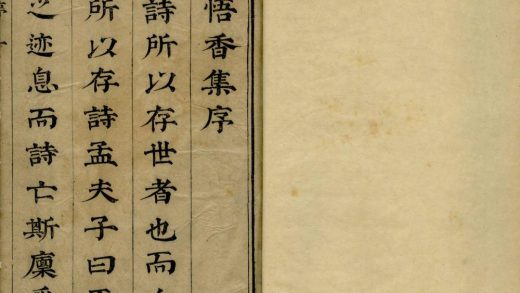 悟香集序
詩所以存世者也而
所以存詩孟夫子曰
之迹息而詩亡斯廩